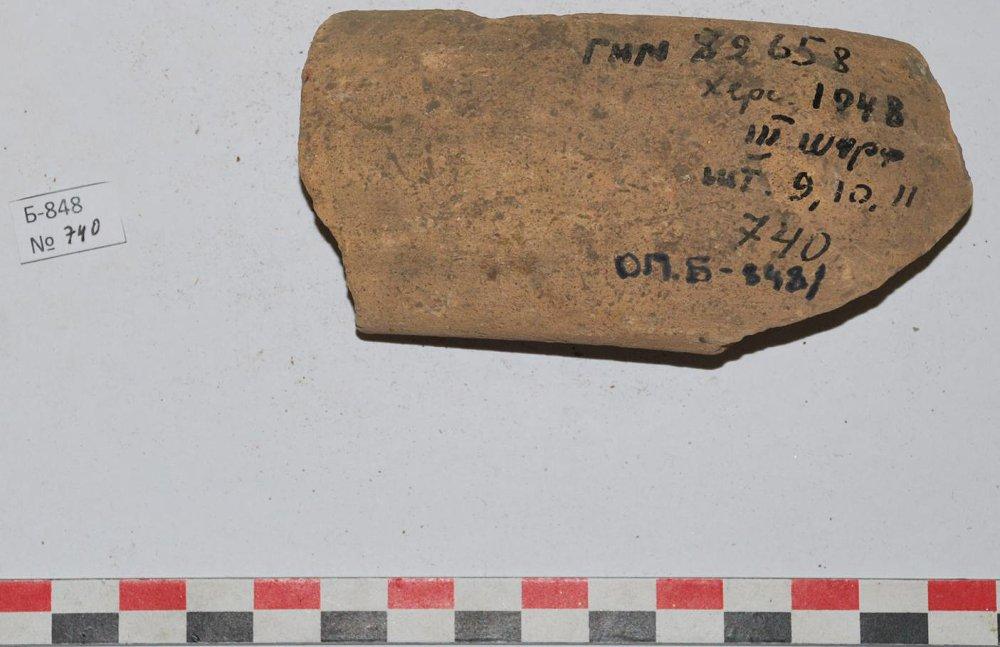 Б-848
№ 740
ГИМ 82658
Херс. 1948
III шурф
шт. 9, 10, 11
740
ОП. Б-848/